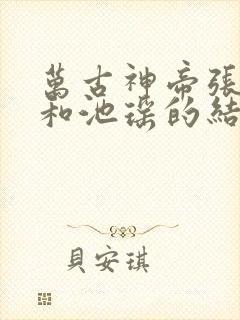 萬古神帝張
和池瑤的結
貝安琪